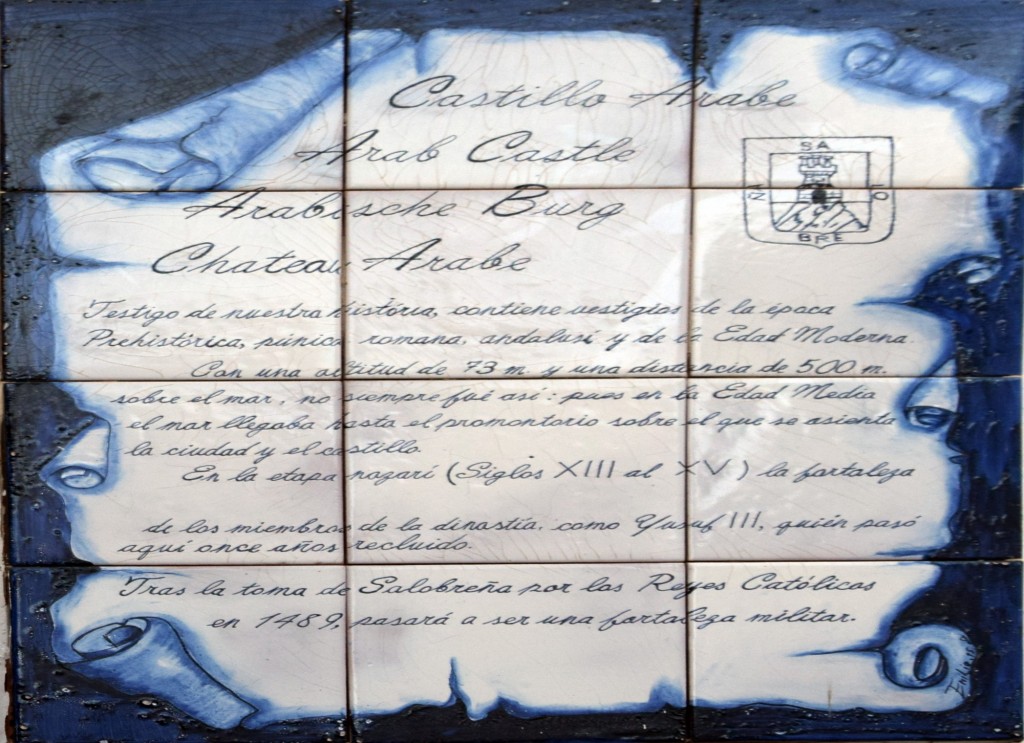 Castillo Arabe
Arab Castle
Arabische Burg
Chateau Arabe
SA
LO
BRE
ÑA
Testigo de nuestra história, contiene vestigios de la época
Prehistórica, púnica romana, andalusí y de la Edad Moderna.
Con una altitud de 73 m. y una distancia de 500 m.
sobre el mar, no siempre fué asi: pues en la Edad Media
el mar llegaba hasta el promontorio sobre el que se asienta
la ciudad y el castillo.
En la etapa nazarí (Siglos XIII al XV) la fortaleza
de los miembros de la dinastía, como Yusuf III, quién pasó
aquí once años recluido.
Tras la toma de Salobreña por los Reyes Católicos
en 1489, pasará a ser una fortaleza militar.